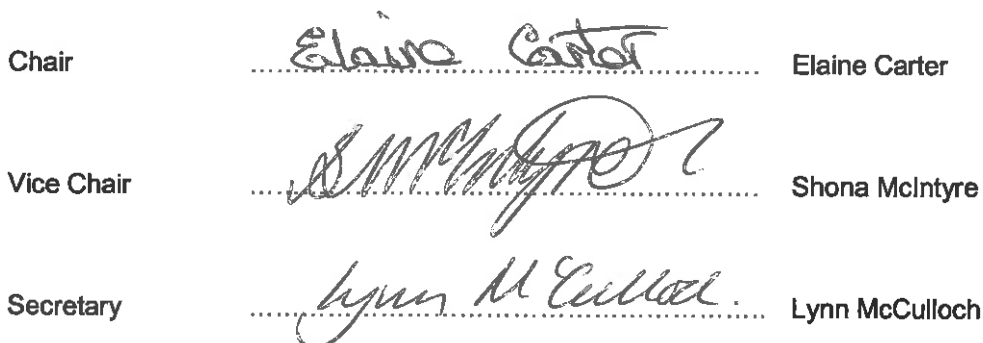 Chair Elaine Carter Elaine Carter
Vice Chair S McIntyre Shona McIntyre
Secretary Lynn McCulloch. Lynn McCulloch